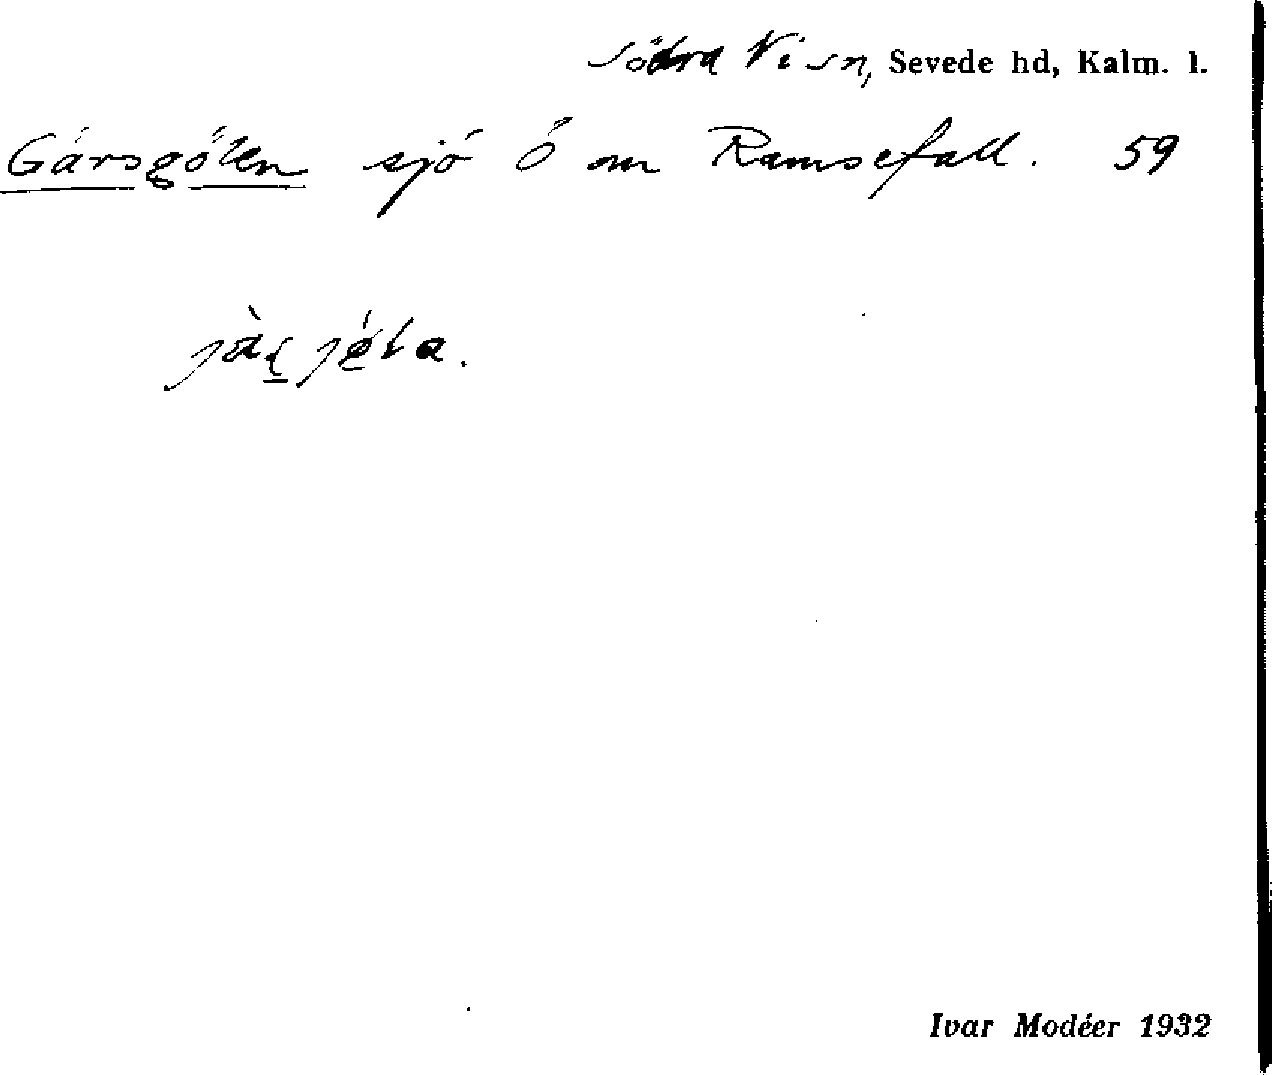 Södra Vi sn, Sevede hd, Kalm. l.
Gärsgölen sjö Ö om Ramsefall. 59
Ivar Modéer 1932